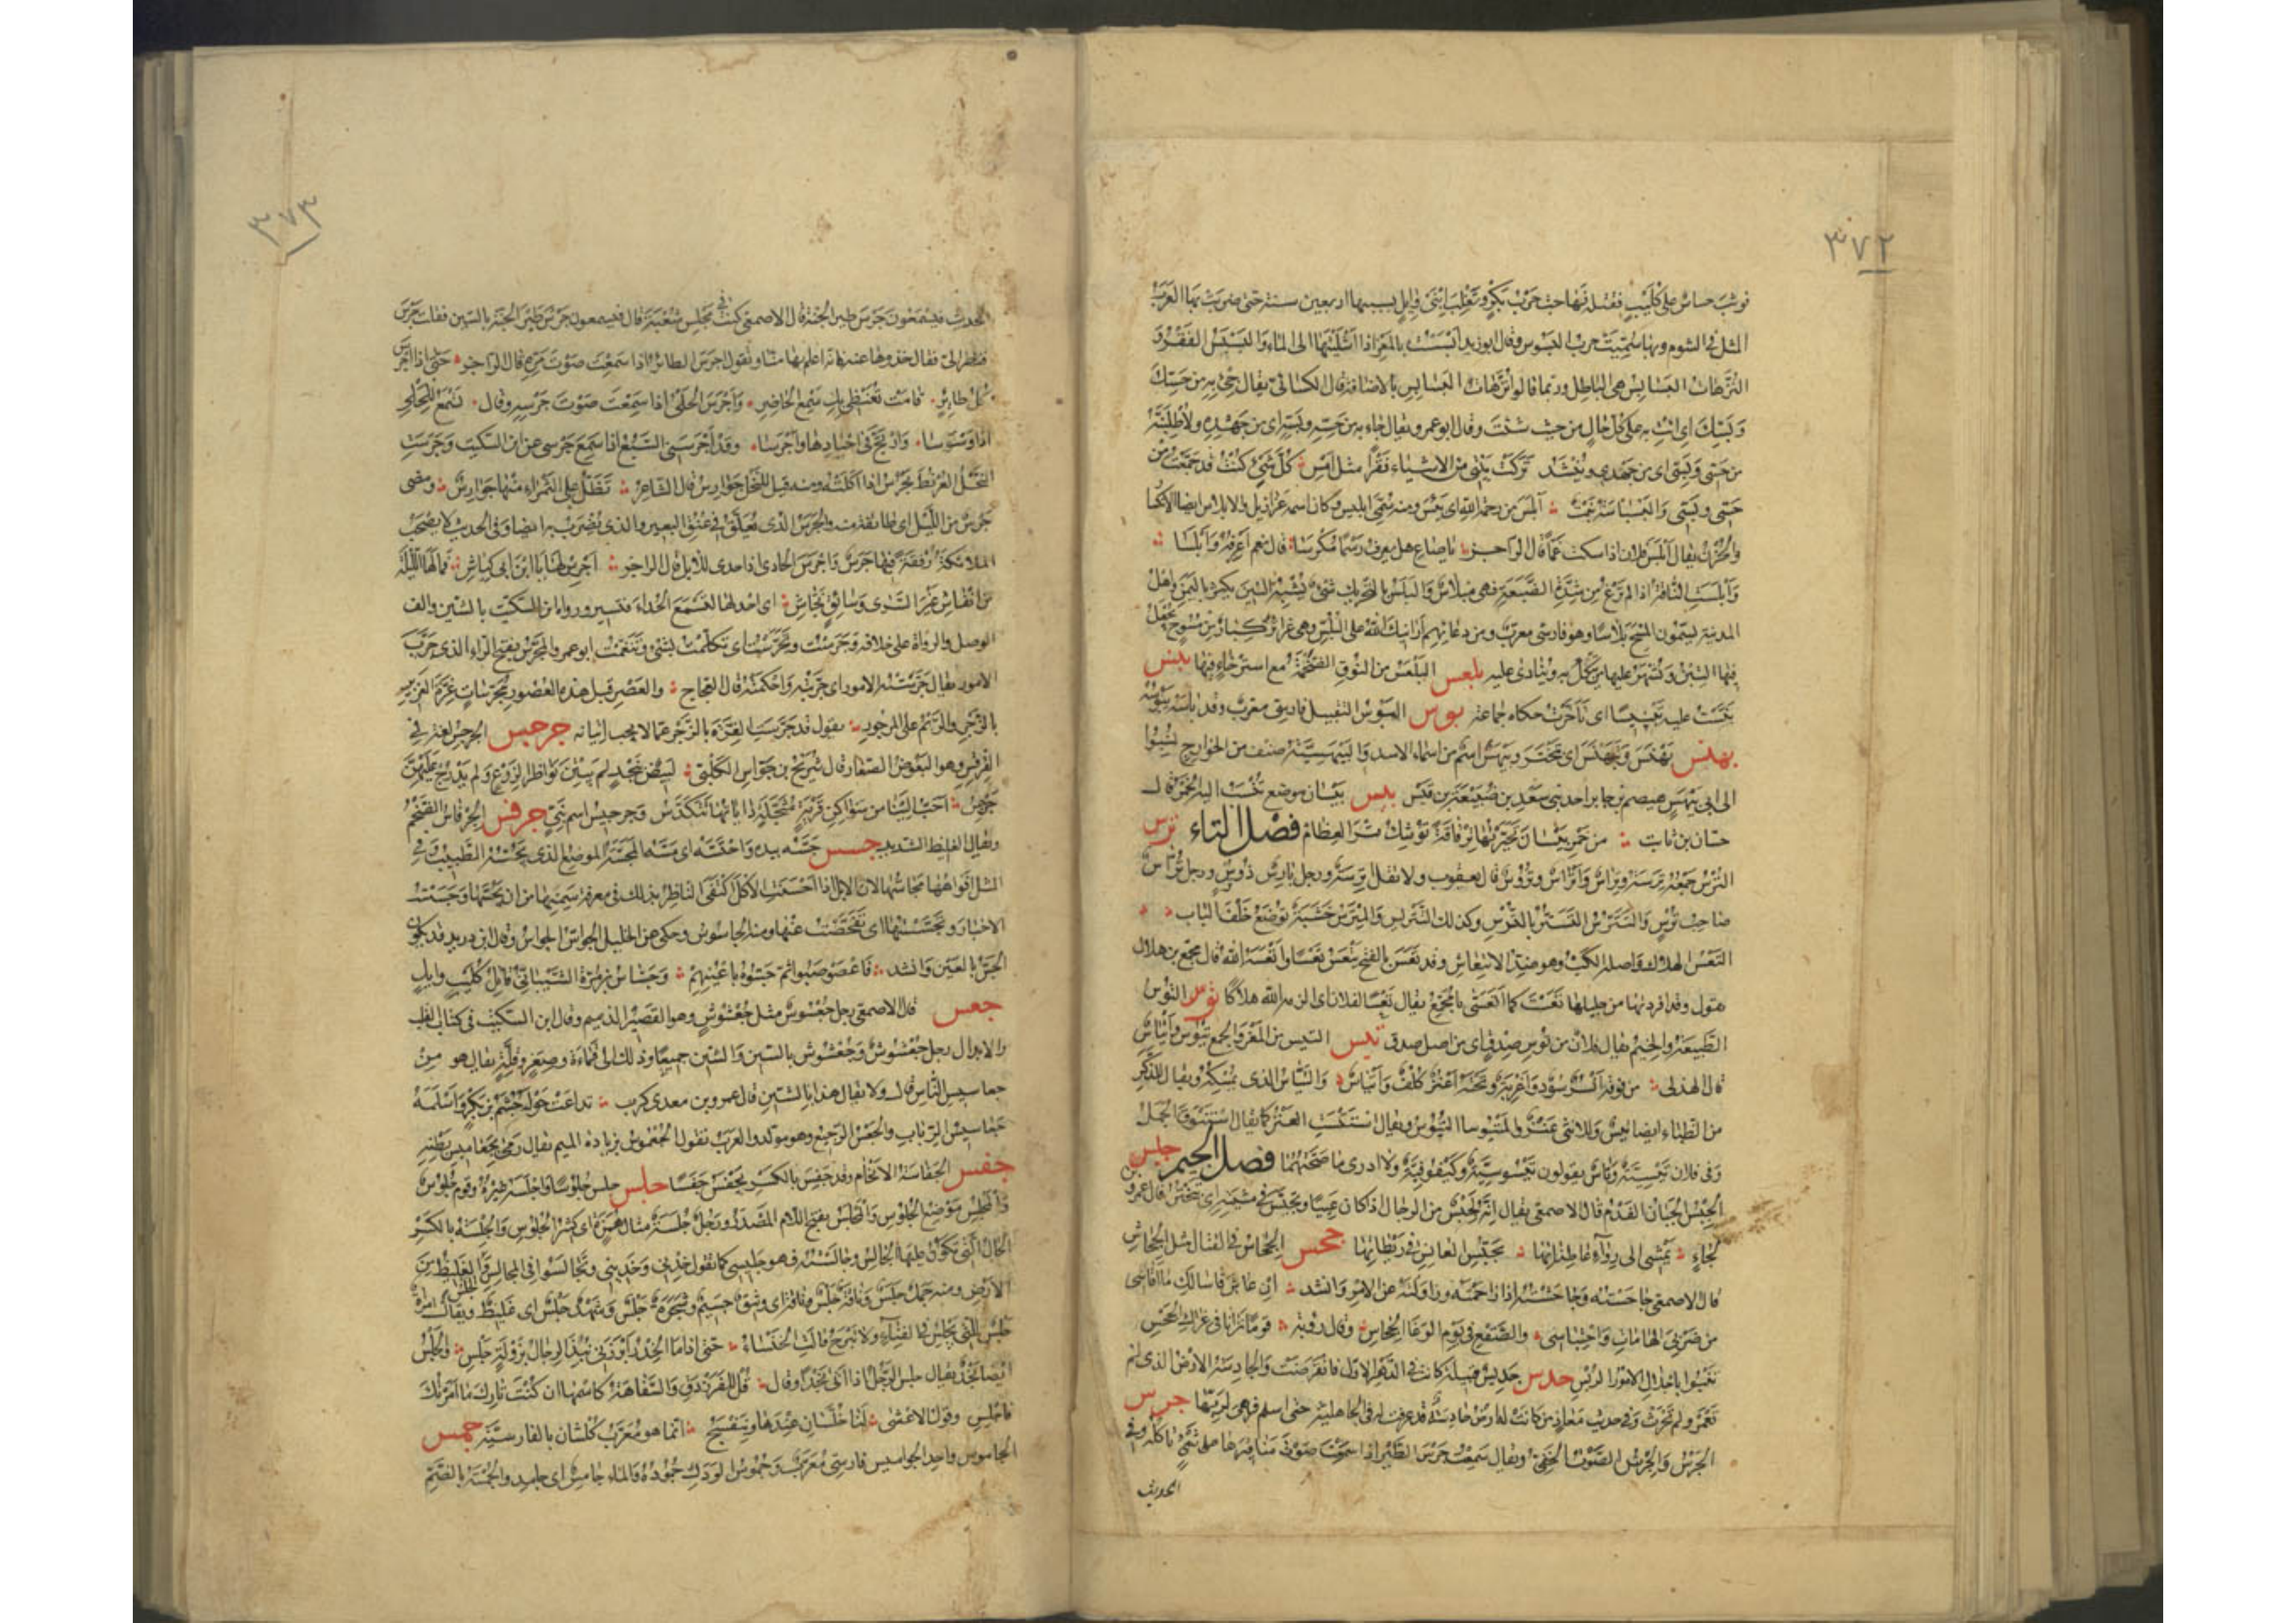 ٣٧٢
فوثب جساس على كليب فقتله فهاجت حرب بكر وتغلب ابنى وايل بسببها اربعين سنة حتى ضربت بها العرب
المثل فى الشوم وبها سميت حرب البسوس وقال ابو زيد ابسست بالمعز اذا اشليتها الى الماء والبسبس القفر و
الترهات البسابس هى الباطل وربما قالوا ترهات البسابس بالاضافة قال الكسائى يقال جئ به من حسك
وبسك اى ائت به على كل حال من حيث شئت وقال ابو عمرو يقال جاء به من حسه وبسه اى من جهده ولاطلبنه
من حسى وبسى اى من جهدى وينشد تركت بيتى من الاشياء قفرا مثل امس كل شئ كنت قد جمعت من
حسى وبسى ابلس من رحمة الله اى يئس ومنه سمى ابليس وكان اسمه عزازيل والابلاس ايضا الانكسار
والحزن يقال ابلس فلان اذا سكت غما قال الراجز يا صاح هل تعرف رسما مكرسا قال نعم اعرفه وابلسا
وابلست الناقة اذا لم ترغ من شدة الضبعة فهى مبلاس والبلس بالتحريك شئ يشبه التين يكثر باليمن واهل
المدينة يسمون المسح بلاسا وهو فارسى معرب ومن دعائهم ارانيك الله على البلس وهى غرائر كبار من مسوح يجعل
فيها التبن ويشهر عليها من ينكل به وينادى عليه بلعس البلعس من النوق الضخمة مع استرخاء فيها بنس
بنست عنه تبنيسا اى تأخرت حكاه جماعة بوس البوس التقبيل فارسى معرب وقد باسه يبوسه
بهنس تبهنس اى تبختر وبيهس اسم من اسماء الاسد والبيهسية صنف من الخوارج نسبوا
الى ابى بيهس هيصم بن جابر احد بنى سعد بن ضبيعة بن قيس بيس بيسان موضع تنسب اليه الخمر قال
حسان بن ثابت من خمر بيسان تخيرتها ترياقة توشك فتر العظام فصل التاء ترس
الترس جمعه ترسة وتراس واتراس وتروس قال يعقوب ولا تقل اترسة ورجل تارس ذو ترس ورجل تراس
صاحب ترس والتترس التستر بالترس وكذلك التتريس والمترس خشبة توضع خلف الباب
التعس الهلاك واصله الكب وهو ضد الانتعاش وقد تعس بالفتح يتعس تعسا واتعسه الله قال مجمع بن هلال
تقول وقد افردتها من حليلها تعست كما اتعستنى يا مجمع يقال تعسا لفلان اى الزمه الله هلاكا توس التوس
الطبيعة والخيم يقال فلان من توس صدق اى من اصل صدق تيس التيس من المعز والجمع تيوس واتياس
قال الهذلى من فوقه انسر سود واغربة وتحته اعنز كلف واتياس والتياس الذى يمسكه ويقال للذكر
من الظباء ايضا تيس وللانثى عنز والمتيوساء التيوس ويقال استتيست العنز كما يقال استنوق الجمل
وفى فلان تيسية وناس يقولون تيسوسية وكيفوفية ولا ادرى ما صحتهما فصل الجيم جبس
الجبس الجبان الفدم قال الاصمعى يقال انه لجبس من الرجال اذا كان عييا وتجبس فى مشيته اى تبختر قال عمر بن
لجاء تمشى الى رواء عاطناتها تجبس العانس فى ريطاتها جحس الجحاس فى القتال مثل الجحاش
قال الاصمعى جاحسته وجاحشته اذا زاحمته وزاولته عن الامر وانشد ان عاش قاسى لك ما اقاسى
من ضربى الهامات واحتباسى والصقع فى يوم الوغا الجحاس وقال رؤبة
جدس جديس قبيلة كانت فى الدهر الاول فانقرضت والجادسة الارض التى لم
تعمر ولم تحرث وفى حديث معاذ من كانت له ارض جادسة قد عرفت له فى الجاهلية حتى اسلم فهى لربها جرس
الجرس والجرس الصوت الخفى ويقال سمعت جرس الطير اذا سمعت صوت مناقيرها على شئ تاكله وفى
الحديث
٣٧٣
الحديث فيسمعون جرس طير الجنة قال الاصمعى كنت فى مجلس شعبة قال فيسمعون جرش طير الجنة بالشين فقلت جرس
فنظر الى فقال خذوها عنه فانه اعلم بهذا منا وتقول اجرس الطائر اذا سمعت صوت مره قال الراجز حتى اذا اجرس
كل طائر قامت تعنظى بك سمع الحاضر واجرس الحلى اذا سمعت صوت جرسه وقال تسمع للحلى
اذا وسوسا وارتج فى اجيادها واجرسا وقد اجرسنى السبع اذا سمع جرسى عن ابن السكيت وجرست
النحل العرفط تجرس اذا اكلته ومنه قيل للنحل جوارس قال الشاعر تظل على الثمراء منها جوارس ومضى
جرس من الليل اى طائفة منه والجرس الذى يعلق فى عنق البعير والذى يضرب به ايضا وفى الحديث لا تصحب
الملائكة رفقة فيها جرس واجرس الحادى اذا حدى للابل قال الراجز اجرس لها يا ابن ابى كباش فما لها الليلة
من انفاش غير السرى وسائق نجاش اى احد لها لتسمع الحداء فتسير ورواه ابن السكيت بالشين والف
الوصل والرواة على خلافه وجرست وتجرست اى تكلمت بشئ وتنغمت ابو عمرو المجرس بفتح الراء الذى جرب
الامور يقال جرسته الامور اى جربته واحكمته قال العجاج والعصر قبل هذه العصور مجرسات غرة الغرير
بالزجر والريم على المزجور يقول قد جرست الغرة بالزجر عما لا يجب اتيانه جرجس الجرجس لغة فى
القرقس وهو البعوض الصغار قال شريح بن جواس الكلبى لبيض بنجد لم يبتن نواظرا لزرع ولم يدرج عليهن
جرجس احب الينا من سواكن قرية مثجلة داياتها تتكدس وجرجيس اسم نبى جرفس الجرفاس الضخم
ويقال الغليظ الشديد جسس جسه بيده واجتسه اى مسه والمجسة الموضع الذى يجسه الطبيب وفى
المثل افواهها مجاسها لان الابل اذا احسنت الاكل اكتفى الناظر بذلك فى معرفة سمنها من ان يجسها وجسست
الاخبار وتجسستها اى تفحصت عنها ومنه الجاسوس وحكى عن الخليل الجواس الحواس وقال ابن دريد قد يكون
الجس بالعين وانشد فاعصوصبوا ثم جسوه باعينهم وجساس بن مرة الشيبانى قاتل كليب وايل
جعس قال الاصمعى رجل جعسوس مثل جعشوش وهو القصير الذميم وقال ابن السكيت فى كتاب القلب
والابدال رجل جعسوس وجعشوش بالسين والشين جميعا وذلك الى قماءة وصغر وقلة يقال هو من
جعاسيس الناس قال ولا يقال هذا بالشين قال عمرو بن معدى كرب تداعت حوله جشم بن بكر واسلمه
جعاسيس الرباب والجعس الرجيع وهو مولد والعرب تقول الجعموس بزيادة الميم يقال رمى بجعاميس بطنه
جفس الجفاسة الاتخام وقد جفس بالكسر يجفس جفسا جلس جلس جلوسا واجلسه غيره وقوم جلوس
والمجلس موضع الجلوس والمجلس بفتح اللام المصدر ورجل جلسة مثال همزة اى كثير الجلوس والجلسة بالكسر
الحال التى تكون عليها الجالس وجالسته فهو جليسى كما تقول خدنى وخدينى وتجالسوا فى المجالس والجلس الغليظ من
الارض ومنه جمل جلس وناقة جلس وناقة اى وثيق جسيم وشجرة جلس وشهد جلس اى غليظ ويقال امراة
جلس للتى تجلس فى الفناء ولا تبرح قالت الخنساء حتى اذا ما الخدر ابرزنى نبذ الرجال بزولة جلس والجلس
ايضا نجد يقال جلس الرجل اذا اتى نجدا وقال قل للفرزدق والسفاهة كاسمها ان كنت تارك ما امرتك
فاجلس وقول الاعشى لنا جلسان عندها وبنفسج انما هو معرب كلشان بالفارسية جمس
الجاموس واحد الجواميس فارسى معرب وجموس الودك جموده والماء جامس اى جامد والجمسة بالضم